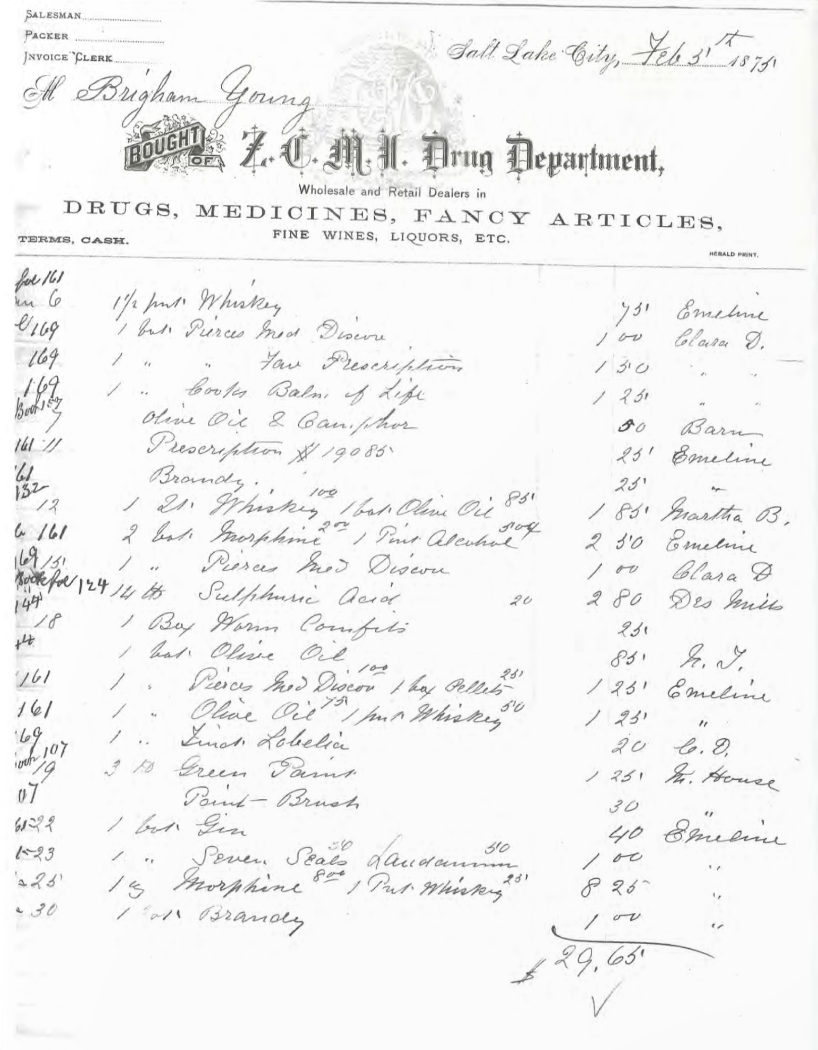 SALESMAN
PACKER
INVOICE CLERK
Salt Lake City, Feb 5th 1875
M Brigham Young
BOUGHT OF Z. C. M. I. Drug Department,
Wholesale and Retail Dealers in
DRUGS, MEDICINES, FANCY ARTICLES,
TERMS, CASH. FINE WINES, LIQUORS, ETC.
HERALD PRINT.
fol 161
6 1 1/2 pnt Whiskey 75 Emeline
169 1 bot Pierces Med Discov 1 00 Clara D.
169 1 " " Fav Prescription 1 50 " "
169 1 " Cooks Balm of Life 1 25 " "
7 Olive Oil & Camphor 50 Barn
161 11 Prescription # 19085 25 Emeline
161 Brandy. 25 "
132
12 1 Qt Whiskey 1 00 1 bot Olive Oil 85 1 85 Martha B.
161 2 bot Morphine 2 00 1 Pint Alcohol 50 2 50 Emeline
169 15 1 " Pierces Med Discov 1 00 Clara D
Book fol 124 14 lb Sulphuric Acid 20 2 80 Des Mills
144
18 1 Box Worm Comfits 25
44 1 bot Olive Oil 85 N. J.
161 1 " Pierces Med Discov 1 00 1 box Pellets 25 1 25 Emeline
161 1 " Olive Oil 75 1 pnt Whiskey 50 1 25 "
169 1 " Tinct Lobelia 20 C. D.
Book 107
19 3 lb Green Paint 1 25 M. House
07 Paint-Brush 30 "
22 1 bot Gin 40 Emeline
23 1 " Seven Seals 50 Laudanum 50 1 00 "
25 1 oz Morphine 8 00 1 Pnt Whiskey 25 8 25 "
30 1 bot Brandy 1 00 "
$ 29.65